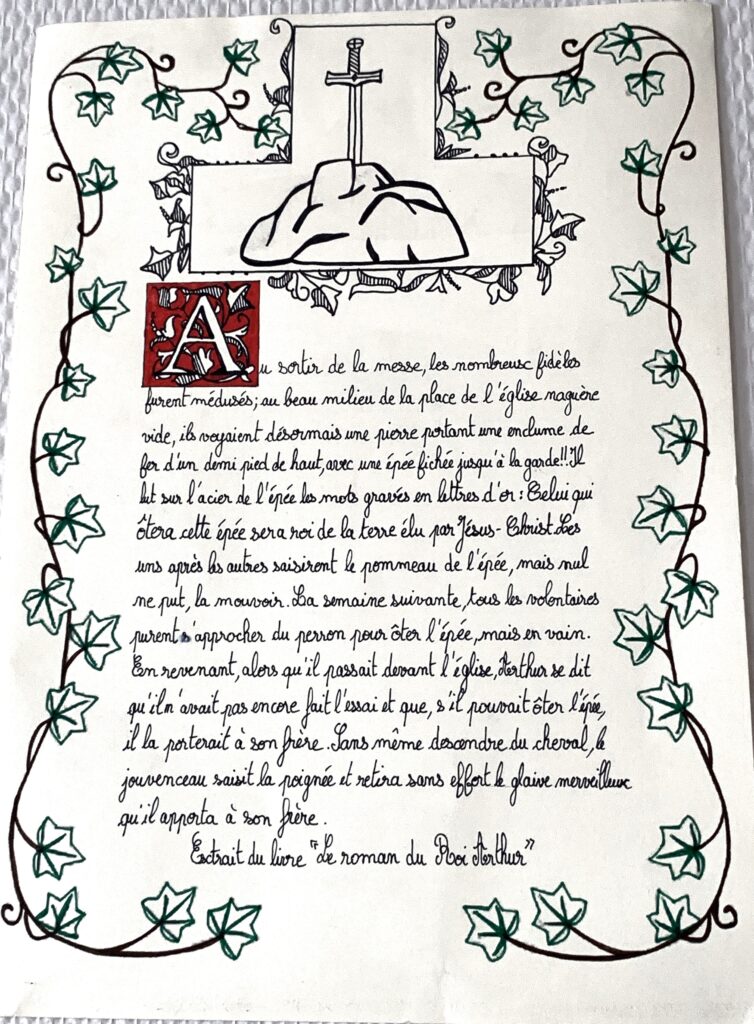 Au sortir de la messe, les nombreux fidèles
furent médusés; au beau milieu de la place de l'église naguère
vide, ils voyaient désormais une pierre portant une enclume de
fer d'un demi pied de haut, avec une épée fichée jusqu'à la garde!! Il
lut sur l'acier de l'épée les mots gravés en lettres d'or: Celui qui
ôtera cette épée sera roi de la terre élu par Jésus-Christ. Les
uns après les autres saisirent le pommeau de l'épée, mais nul
ne put, la mouvoir. La semaine suivante, tous les volontaires
purent s'approcher du perron pour ôter l'épée, mais en vain.
En revenant, alors qu'il passait devant l'église, Arthur se dit
qu'il n'avait pas encore fait l'essai et que, s'il pouvait ôter l'épée,
il la porterait à son frère. Sans même descendre du cheval, le
jouvenceau saisit la poignée et retira sans effort le glaive merveilleux
qu'il apporta à son frère.
Extrait du livre "Le roman du Roi Arthur"